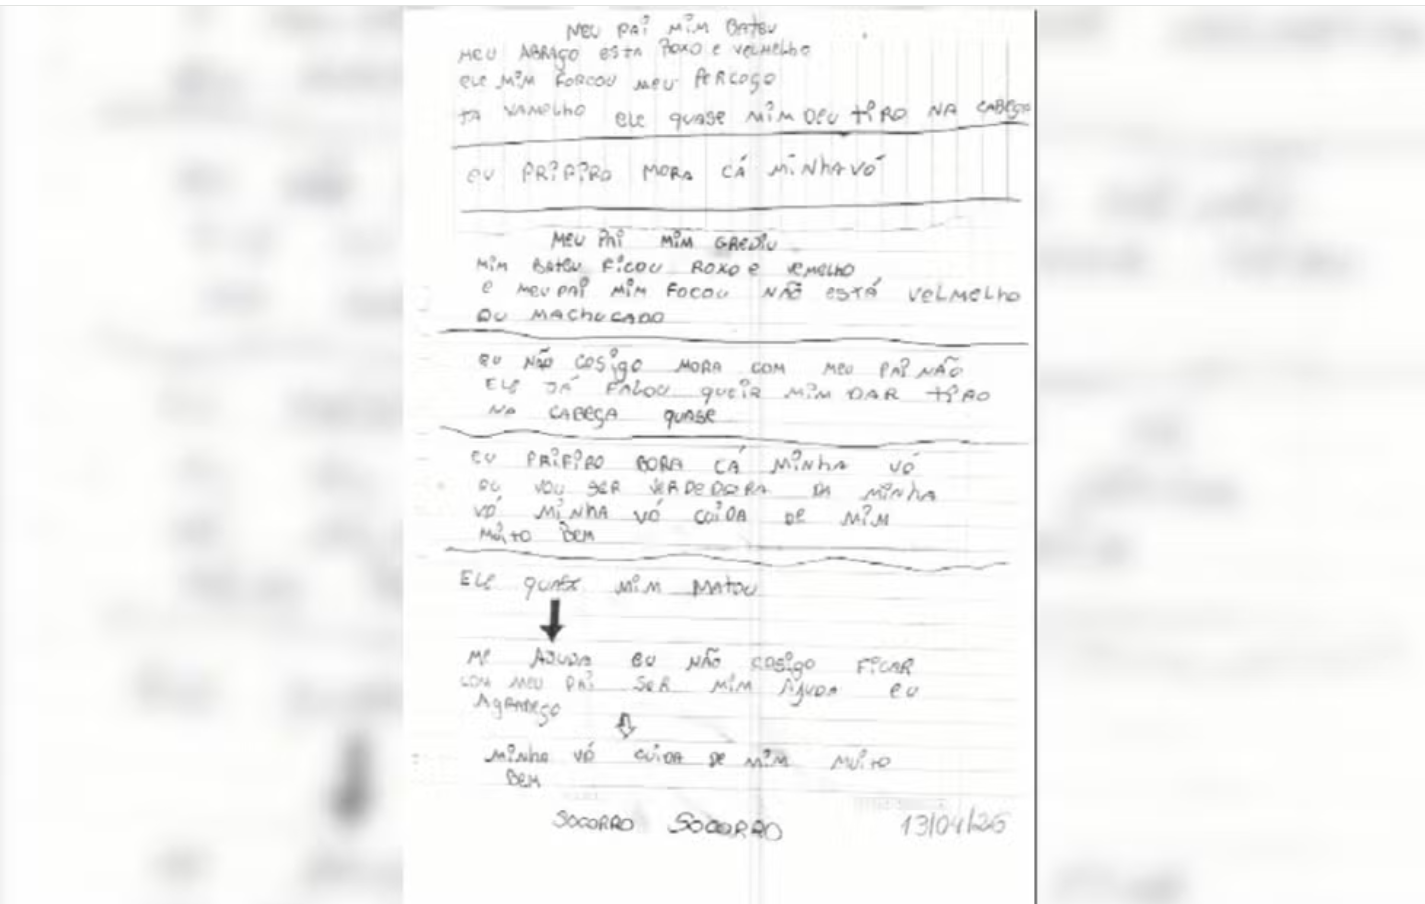 MEU PAI MIM BATEU
MEU ABRAÇO ESTA ROXO E VELMELHO
ELE MIM FORCOU MEU PERCOÇO
TA VAMELHO ELE QUASE MIM DEU TIRO NA CABEÇA
EU PRIFIRO MORA CÁ MINHA VÓ
MEU PAI MIM GREDIU
MIM BATEU FICOU ROXO E VEMELHO
E MEU PAI MIM FOCOU NÃO ESTÁ VELMELHO
OU MACHUCADO
EU NÃO COSIGO MORA COM MEU PAI NÃO
ELE JÁ FALOU QUEIR MIM DAR TIRO
NA CABEÇA QUASE
EU PRIFIRO BORA CÁ MINHA VÓ
EU VOU SER VERDEDORA DA MINHA
VÓ MINHA VÓ COIDA DE MIM
MUITO BEM
ELE QUASE MIM MATOU
ME AJUDA EU NÃO COSIGO FICAR
COM MEU PAI SER MIM AJUDA EU
AGRADEÇO
MINHA VÓ CUIDA DE MIM MUITO
BEM
SOCORRO SOCORRO 13/04/26